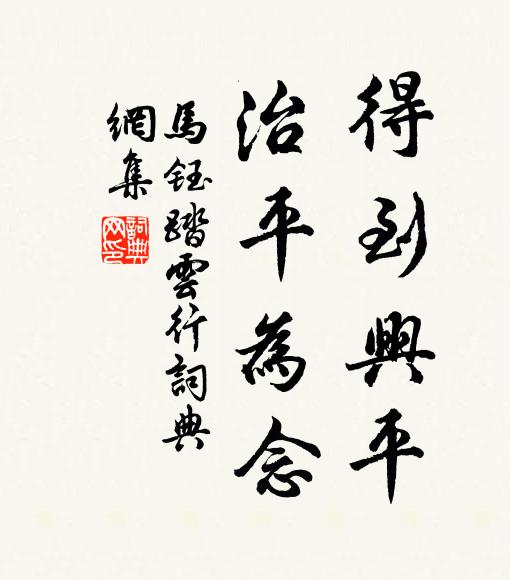 得到興平
治平為念
馬鈺踏雲行詞典
網集
詞典網印